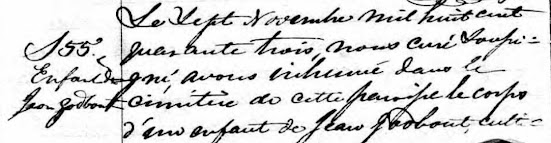 S55e
Enfant de
Jean Godbout
Le Sept Novembre mil huit cent
quarante trois, nous curé Soussi-
gné avons inhumé dans le
cimitière de cette paroisse le corps
d'un enfant de Jean Godbout, culti-